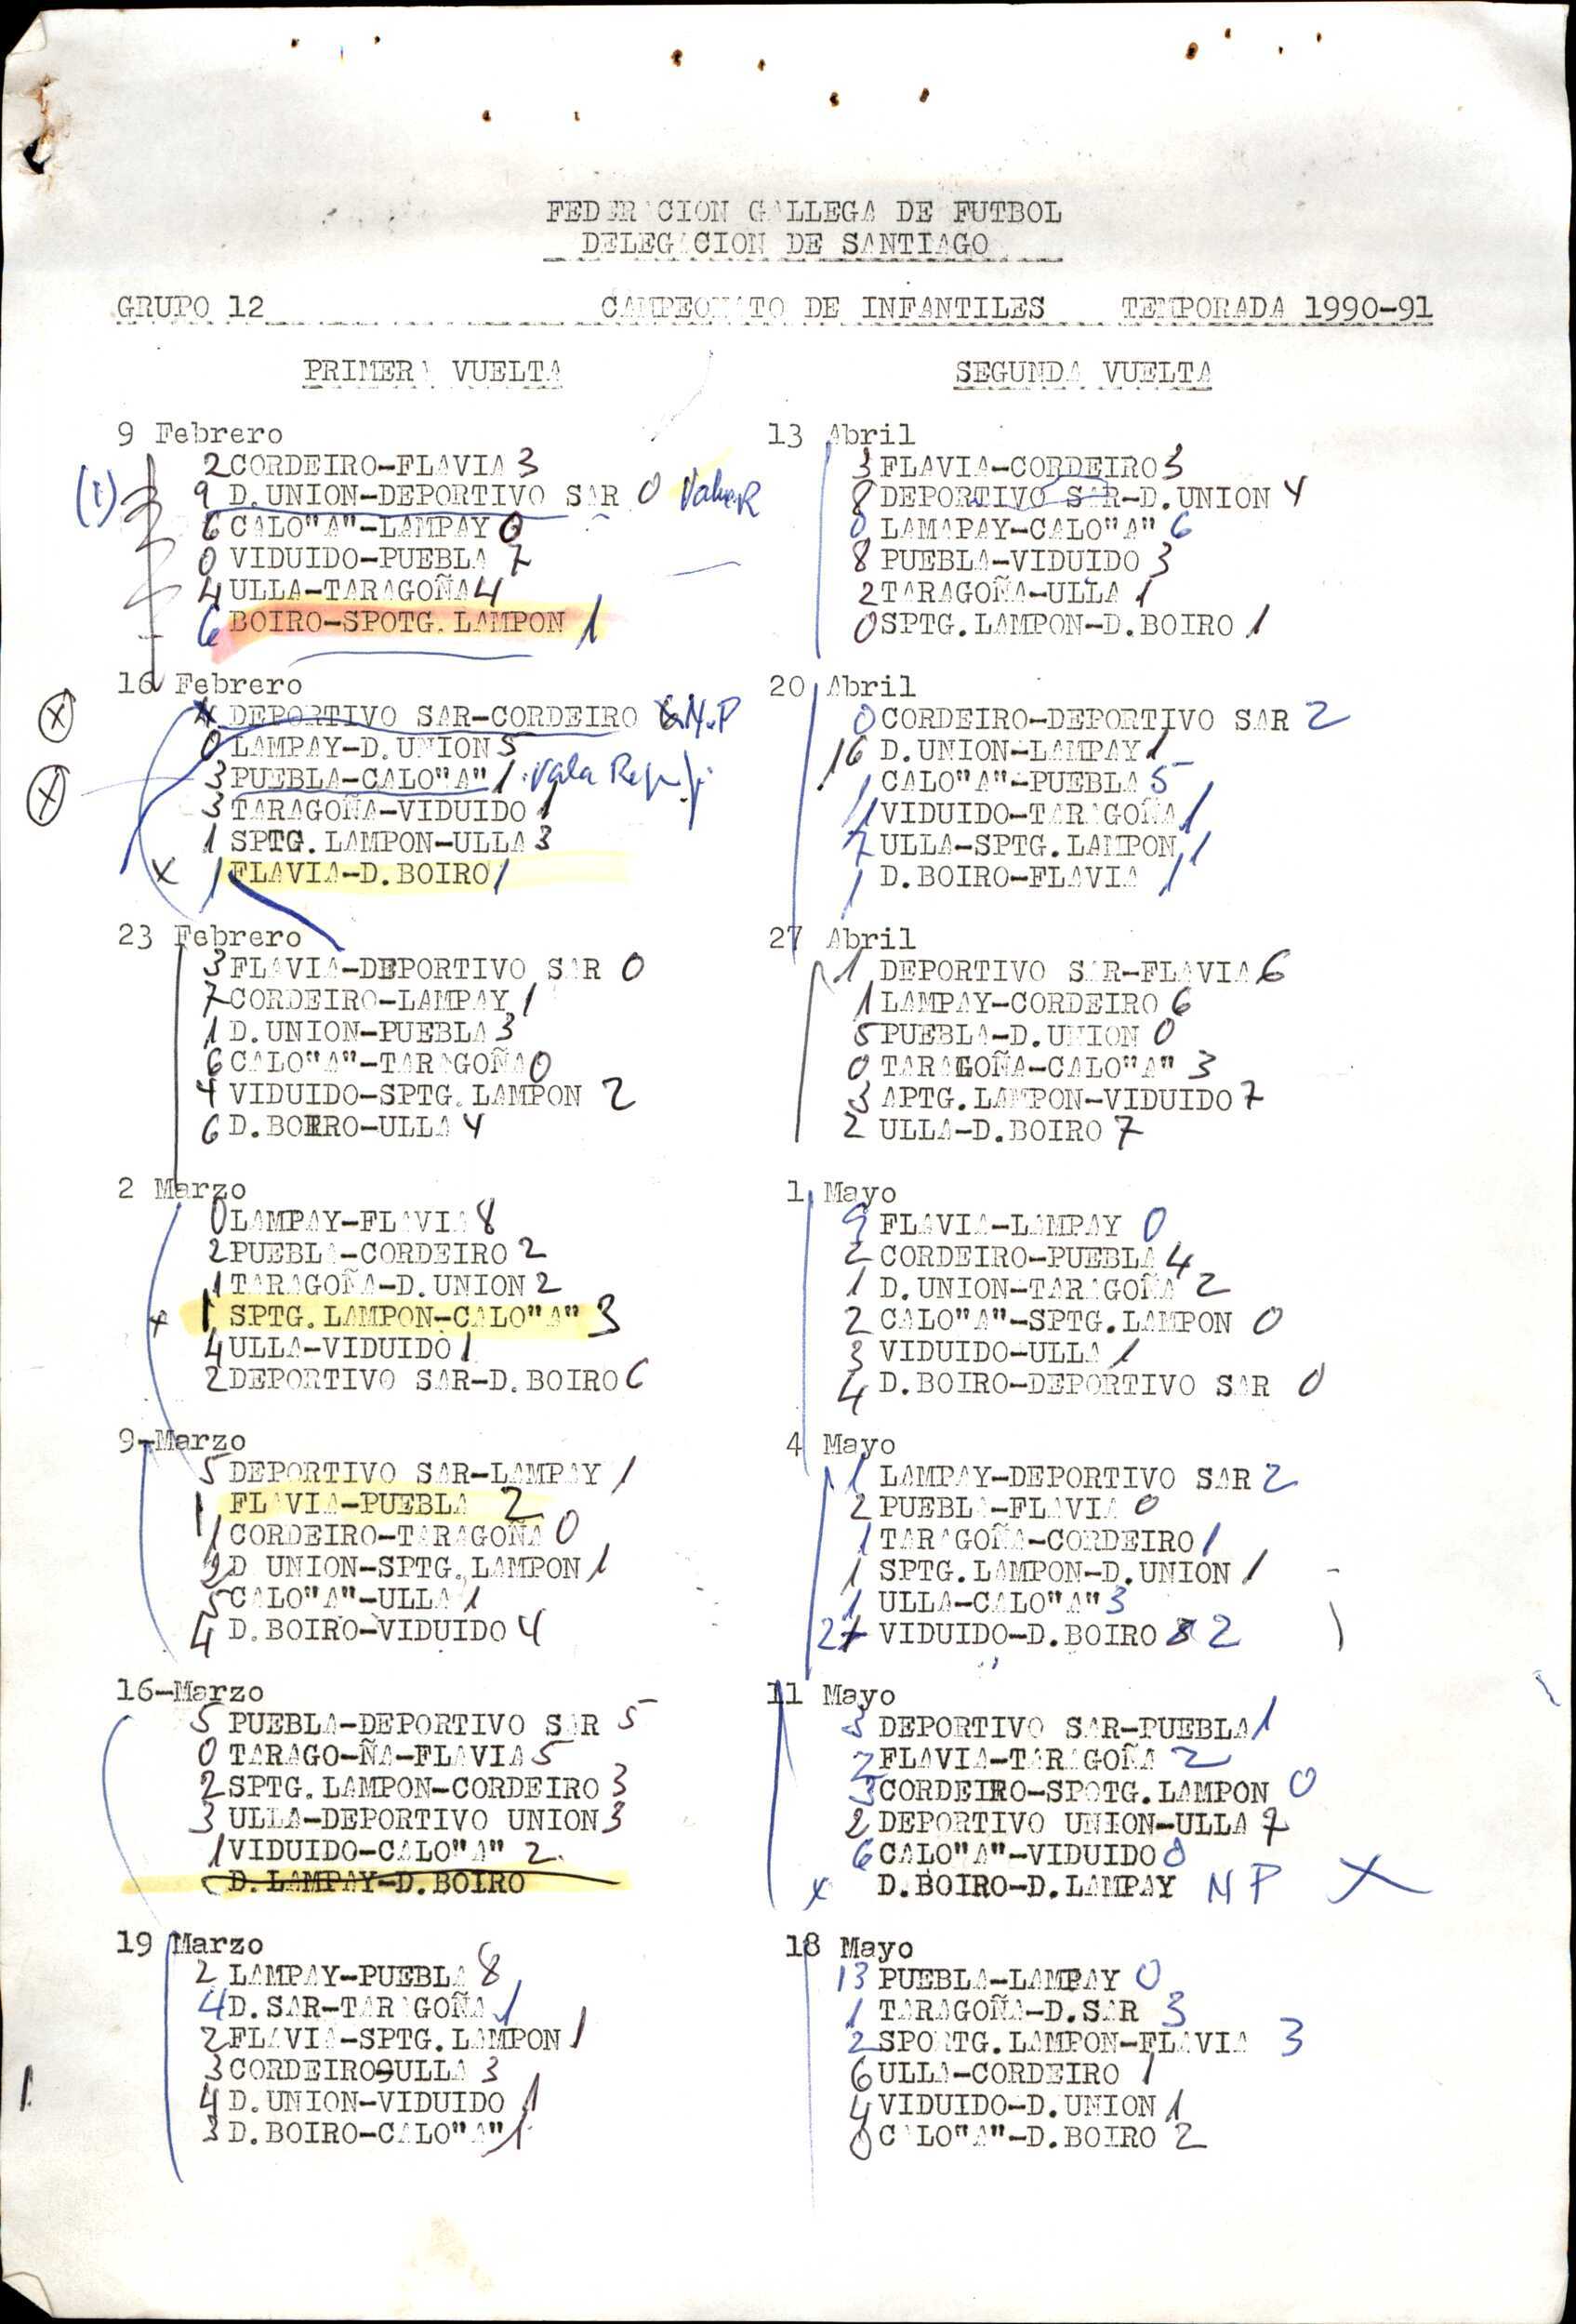 FEDERACION GALLEGA DE FUTBOL
DELEGACION DE SANTIAGO
GRUPO 12 CAMPEONATO DE INFANTILES TEMPORADA 1990-91
PRIMERA VUELTA
9 Febrero
2 CORDEIRO-FLAVIA 3
(1) 9 D.UNION-DEPORTIVO SAR 0
6 CALO"A"-LAMPAY 0
0 VIDUIDO-PUEBLA 7
4 ULLA-TARAGOÑA 4
6 BOIRO-SPOTG.LAMPON 1
16 Febrero
DEPORTIVO SAR-CORDEIRO N.P
0 LAMPAY-D.UNION 5
3 PUEBLA-CALO"A" 1 Vala
3 TARAGOÑA-VIDUIDO 1
1 SPTG.LAMPON-ULLA 3
x 1 FLAVIA-D.BOIRO 1
23 Febrero
3 FLAVIA-DEPORTIVO SAR 0
7 CORDEIRO-LAMPAY 1
1 D.UNION-PUEBLA 3
6 CALO"A"-TARAGOÑA 0
4 VIDUIDO-SPTG.LAMPON 2
6 D.BOIRO-ULLA 4
2 Marzo
0 LAMPAY-FLAVIA 8
2 PUEBLA-CORDEIRO 2
1 TARAGOÑA-D.UNION 2
x 1 SPTG.LAMPON-CALO"A" 3
4 ULLA-VIDUIDO 1
2 DEPORTIVO SAR-D.BOIRO 6
9-Marzo
5 DEPORTIVO SAR-LAMPAY 1
1 FLAVIA-PUEBLA 2
1 CORDEIRO-TARAGOÑA 0
D UNION-SPTG.LAMPON 1
5 CALO"A"-ULLA 1
4 D.BOIRO-VIDUIDO 4
16-Marzo
5 PUEBLA-DEPORTIVO SAR 5
0 TARAGO-ÑA-FLAVIA 5
2 SPTG.LAMPON-CORDEIRO 3
3 ULLA-DEPORTIVO UNION 3
1 VIDUIDO-CALO"A" 2
D.LAMPAY-D.BOIRO
19 Marzo
2 LAMPAY-PUEBLA 8
4 D.SAR-TARAGOÑA 1
2 FLAVIA-SPTG.LAMPON 1
3 CORDEIRO-ULLA 3
4 D.UNION-VIDUIDO 1
3 D.BOIRO-CALO"A" 1
SEGUNDA VUELTA
13 Abril
3 FLAVIA-CORDEIRO 3
8 DEPORTIVO SAR-D.UNION 4
0 LAMAPAY-CALO"A" 6
8 PUEBLA-VIDUIDO 3
2 TARAGOÑA-ULLA 1
0 SPTG.LAMPON-D.BOIRO 1
20 Abril
0 CORDEIRO-DEPORTIVO SAR 2
16 D.UNION-LAMPAY 1
1 CALO"A"-PUEBLA 5
1 VIDUIDO-TARAGOÑA 1
7 ULLA-SPTG.LAMPON 1
1 D.BOIRO-FLAVIA 1
27 Abril
1 DEPORTIVO SAR-FLAVIA 6
1 LAMPAY-CORDEIRO 6
5 PUEBLA-D.UNION 0
0 TARAGOÑA-CALO"A" 3
3 APTG.LAMPON-VIDUIDO 7
2 ULLA-D.BOIRO 7
1 Mayo
9 FLAVIA-LAMPAY 0
2 CORDEIRO-PUEBLA 4
1 D.UNION-TARAGOÑA 2
2 CALO"A"-SPTG.LAMPON 0
3 VIDUIDO-ULLA 1
4 D.BOIRO-DEPORTIVO SAR 0
4 Mayo
1 LAMPAY-DEPORTIVO SAR 2
2 PUEBLA-FLAVIA 0
1 TARAGOÑA-CORDEIRO 1
1 SPTG.LAMPON-D.UNION 1
1 ULLA-CALO"A" 3
2 VIDUIDO-D.BOIRO 2
11 Mayo
3 DEPORTIVO SAR-PUEBLA 1
2 FLAVIA-TARAGOÑA 2
3 CORDEIRO-SPOTG.LAMPON 0
2 DEPORTIVO UNION-ULLA 7
6 CALO"A"-VIDUIDO 0
x D.BOIRO-D.LAMPAY NP X
18 Mayo
13 PUEBLA-LAMPAY 0
1 TARAGOÑA-D.SAR 3
2 SPORTG.LAMPON-FLAVIA 3
6 ULLA-CORDEIRO 1
4 VIDUIDO-D.UNION 1
0 CALO"A"-D.BOIRO 2